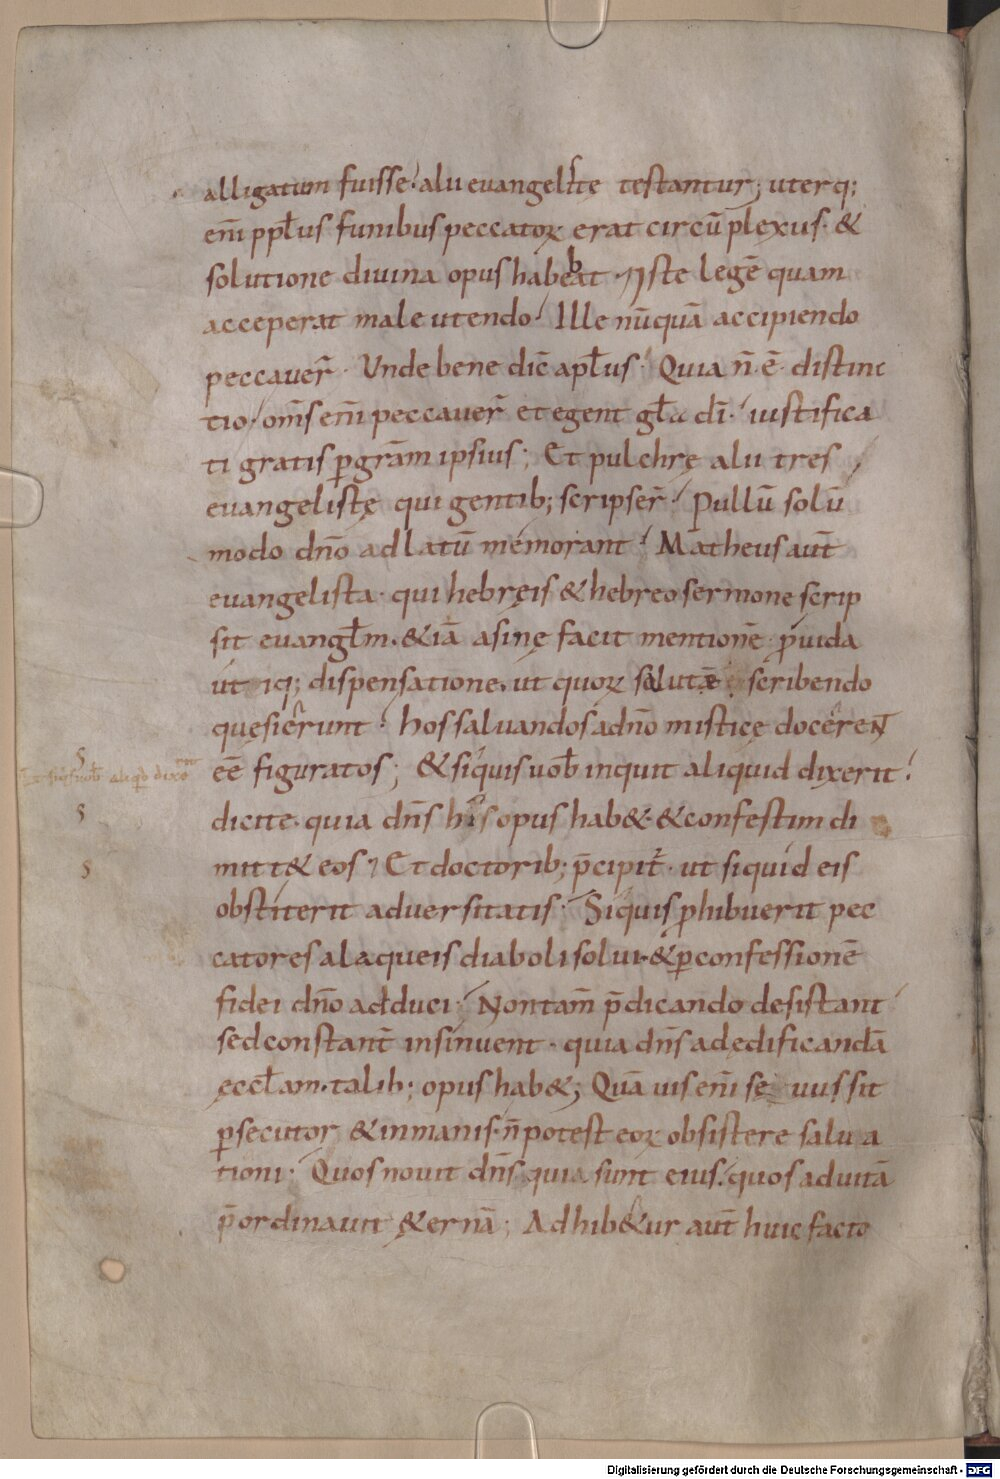 alligatum fuisse. alii evangelitę testantur; uterq;
eni̅ pp̅l̅us funibus peccatoꝝ erat circu̅plexus. &
solutione divina opus habebat. Iste lege̅ quam
acceperat male utendo. Ille nu̅qua̅ accipiendo
peccaver̅. Unde bene dic̅ apl̅us. Quia n̅ e̅ distinc
tio. om̅s eni̅ peccaver̅ et egent gl̅a di̅. iustifica
ti gratis ꝑ gra̅m ipsius; Et pulchrę alii tres
euangelistę qui gentib; scripser̅. Pullu̅ solu̅
modo dn̅o adlatu̅ memorant. Matheus aut̅
euangelista. qui hebręis & hebreo sermone scrip
sit evangl̅m. & ia̅ asinę facit mentione̅ p̅uida
ut iq; dispensatione. ut quoꝝ salute̅ scribendo
quęsierunt. hos saluandos a dn̅o misticę docerent
ee̅ figuratos; & siquis uob̅ inquit aliquid dixerit.
siq̅s uob̅ aliqd̅ dix̅
dicite. quia dn̅s his opus hab&. & confestim di
mitt& eos; Et doctorib; p̅cipit̅. ut siquid eis
obstiterit adversitatis. Siquis ꝓhibuerit pec
catores a laqueis diaboli solui. & ꝑ confessione̅
fidei dn̅o adduci. Non tam̅ p̅dicando desistant
sed constant̅ insinuent. quia dn̅s ad ędificanda̅
ęccl̅am. talib; opus hab&; Qua̅ uis eni̅ sę uus sit
ꝑsecutor & inmanis. n̅ potest eoꝝ obsistere salua
tioni. Quos novit dn̅s quia sunt eius. quos ad uita̅
p̅ordinauit &erna̅; Adhib&ur aut̅ huic facto
Digitalisierung gefördert durch die Deutsche Forschungsgemeinschaft - DFG